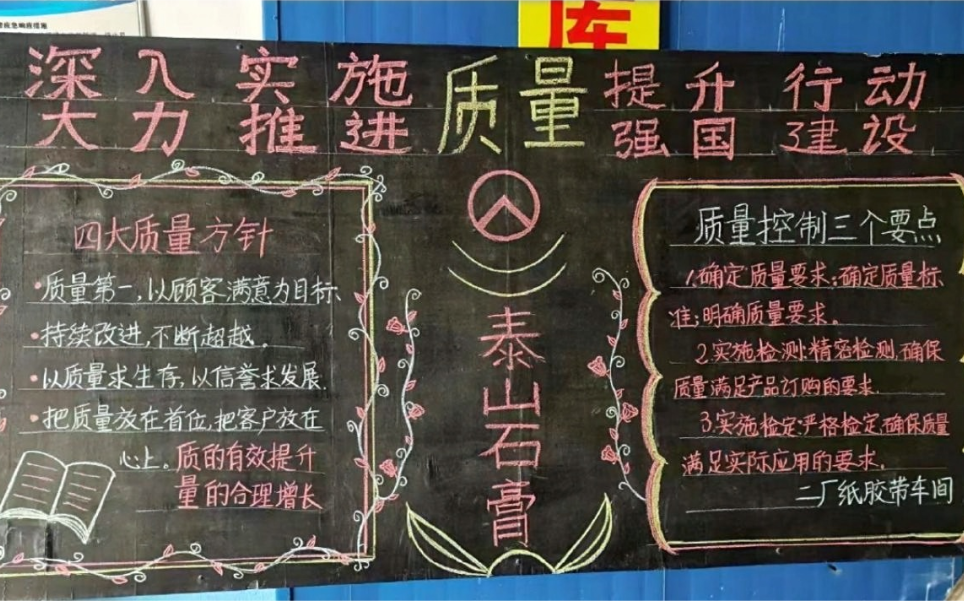 库
深入实施质量提升行动
大力推进质量强国建设
四大质量方针
·质量第一,以顾客满意为目标
·持续改进,不断超越。
·以质量求生存,以信誉求发展.
·把质量放在首位,把客户放在
心上。质的有效提升
量的合理增长
泰山石膏
质量控制三个要点
1.确定质量要求:确定质量标
准;明确质量要求。
2.实施检测:精密检测,确保
质量满足产品订购的要求.
3.实施检定:严格检定,确保质量
满足实际应用的要求.
二厂纸胶带车间